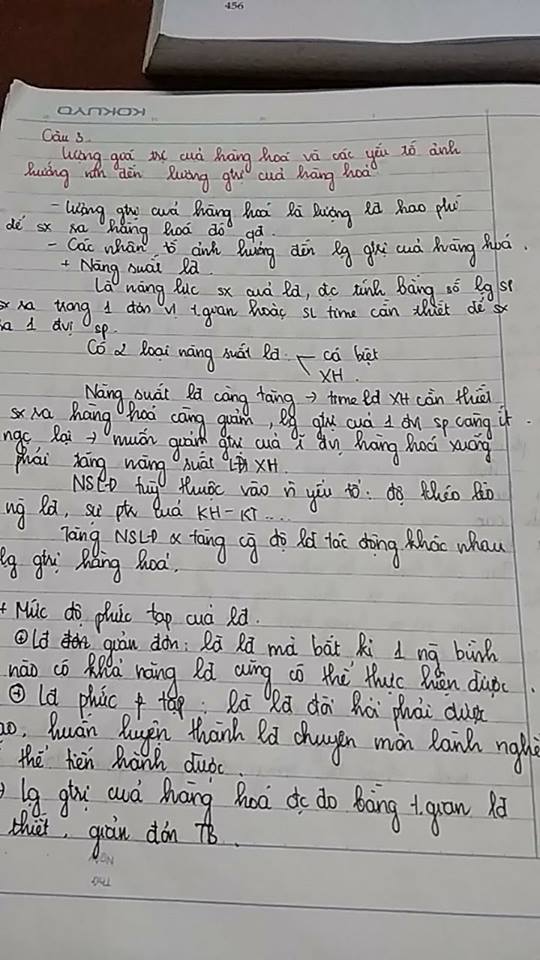 456
KOKUYO
Câu 3.
Lượng giá trị của hàng hoá và các yếu tố ảnh
hưởng đến lượng gtrị của hàng hoá
- Lượng gtrị của hàng hoá là lượng lđ hao phí
để sx ra hàng hoá đó
- Các nhân tố ảnh hưởng đến lg gtrị của hàng hoá.
+ Năng suất lđ.
Là năng lực sx của lđ, đc tính bằng số lg sp
sx ra trong 1 đơn vị t.gian hoặc sl time cần thiết để sx
ra 1 đvị sp.
Có 2 loại năng suất lđ: cá biệt
XH.
Năng suất lđ càng tăng → time lđ XH cần thiết
sx ra hàng hoá càng giảm, lg gtrị của 1 đvị sp càng ít.
ngc lại → muốn giảm gtrị của 1 đvị hàng hoá xuống
phải tăng năng suất LĐ XH.
NSLĐ tuỳ thuộc vào n yếu tố: độ khéo léo
ng lđ, sự ptr của KH-KT....
Tăng NSLĐ & tăng cg độ lđ tác động khác nhau
lg gtrị hàng hoá.
+ Mức độ phức tạp của lđ.
⊕ Lđ giản đơn: là lđ mà bất kì 1 ng bình
nào có khả năng lđ cũng có thể thực hiện được.
⊕ Lđ phức tạp: là lđ đòi hỏi phải được
ạo, huấn luyện thành lđ chuyên môn lành nghề
thể tiến hành được.
Lg gtrị của hàng hoá đc đo bằng t.gian lđ
thiết, giản đơn TB.